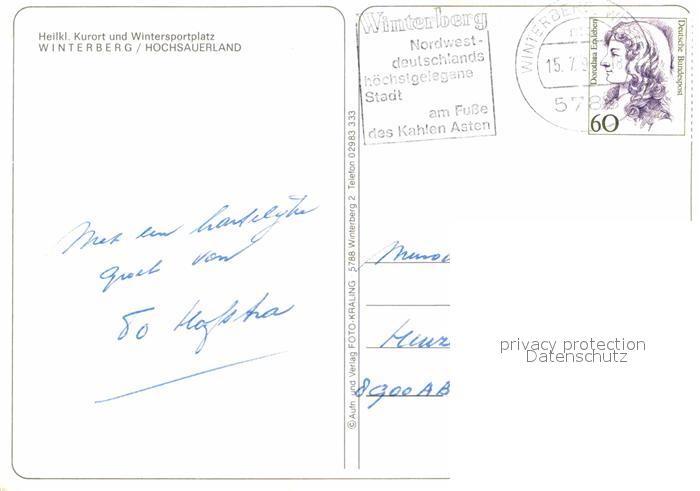 Heilkl. Kurort und Wintersportplatz
WINTERBERG / HOCHSAUERLAND
Met een hartelijke
groet van
Hofstra
© Aufn. und Verlag FOTO-KRALING 5788 Winterberg 2 Telefon 02983 333
Winterberg
Nordwest-
deutschlands
höchstgelegene
Stadt
am Fuße
des Kahlen Asten
WINTERBERG
15.7.
578
Dorothea Erxleben
Deutsche Bundespost
60
8900 AB
privacy protection
Datenschutz